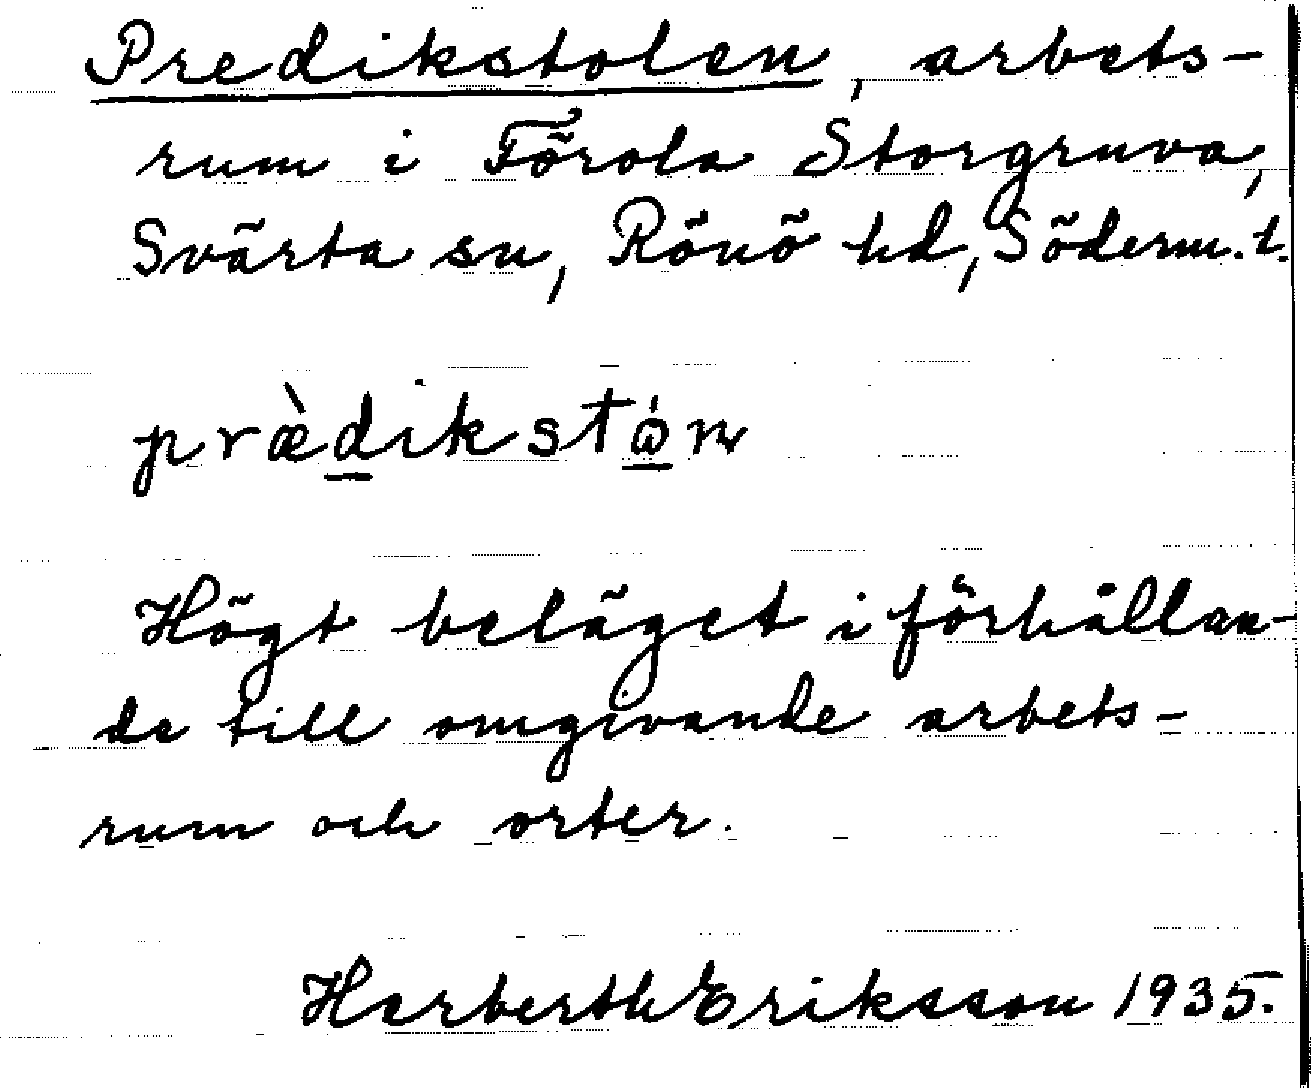 Predikstolen, arbets-
rum i Förola Storgruva,
Svärta sn, Rönö hd, Söderm. l.
præ̀dikstω̇n
Högt beläget i förhållan-
de till omgivande arbets-
rum och orter.
Herberth Eriksson 1935.